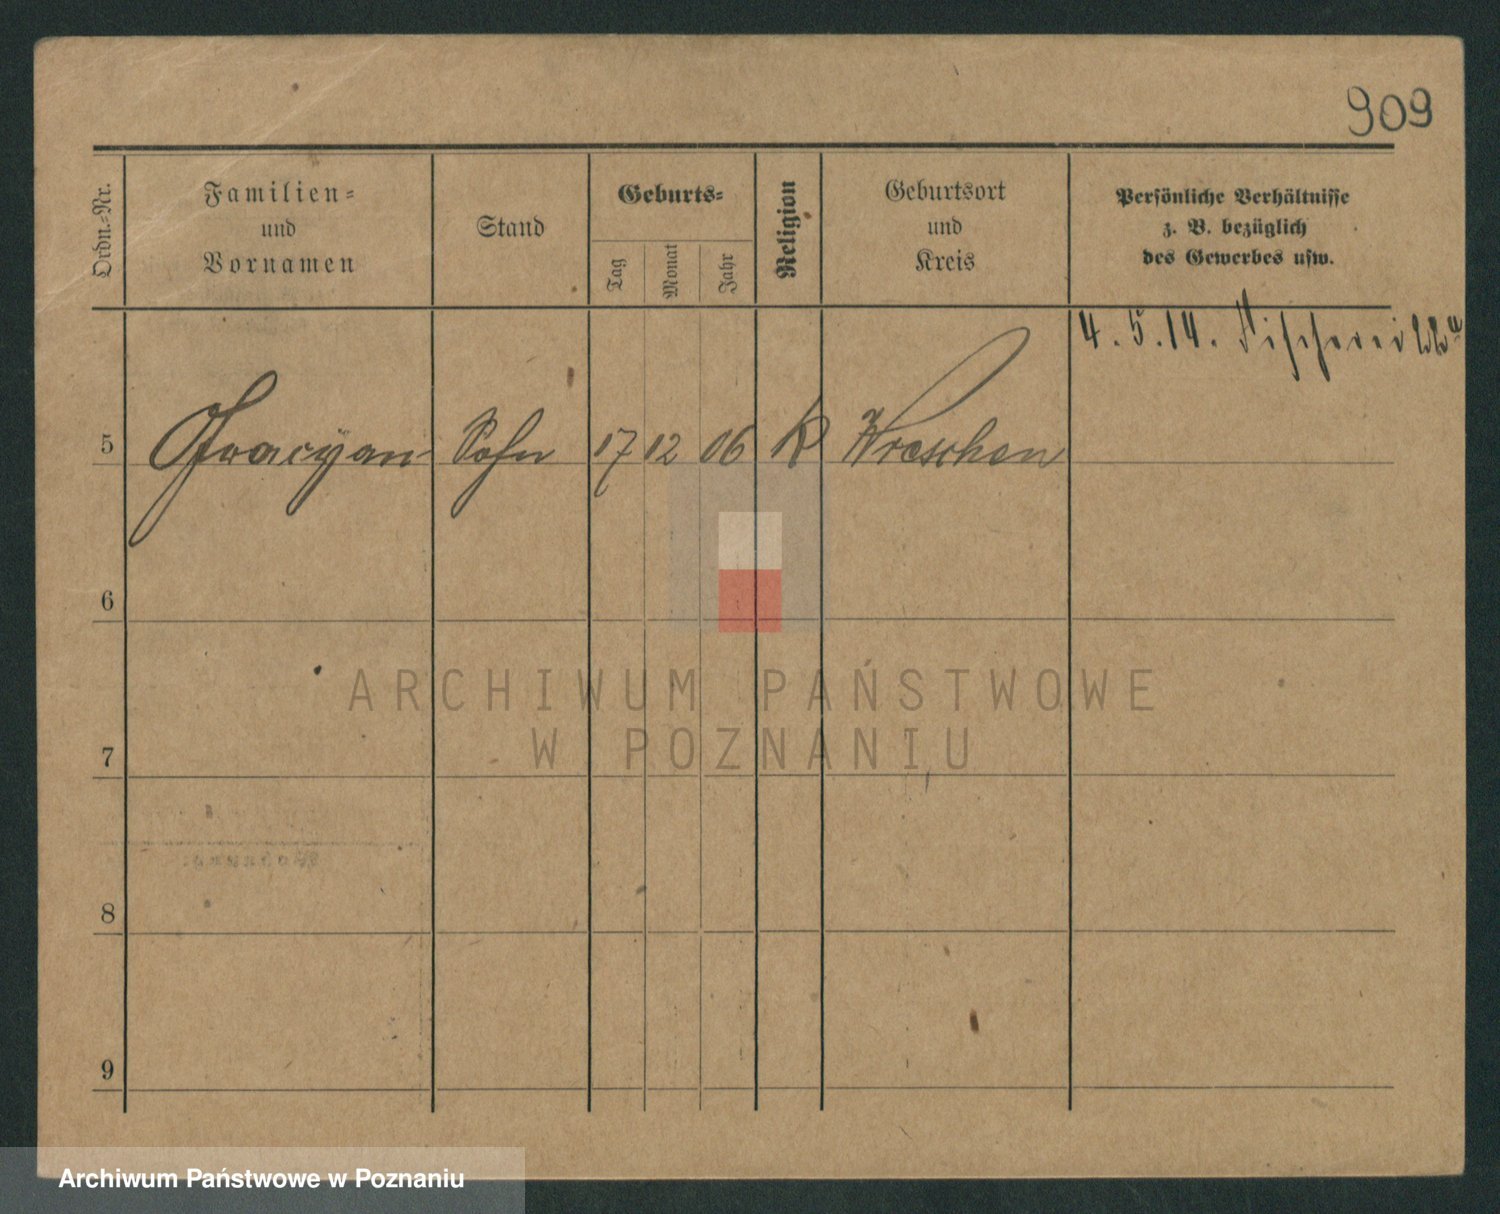 909
Ordn.-Nr.
Familien-
und
Vornamen
Stand
Geburts-
Tag
Monat
Jahr
Religion
Geburtsort
und
Kreis
Persönliche Verhältnisse
z. B. bezüglich
des Gewerbes usw.
4.5.14. Fischerei
5 Gracyan Sohn 17 12 06 K Wreschen
6
ARCHIWUM PAŃSTWOWE
W POZNANIU
7
Wohnung:
8
9
Archiwum Państwowe w Poznaniu